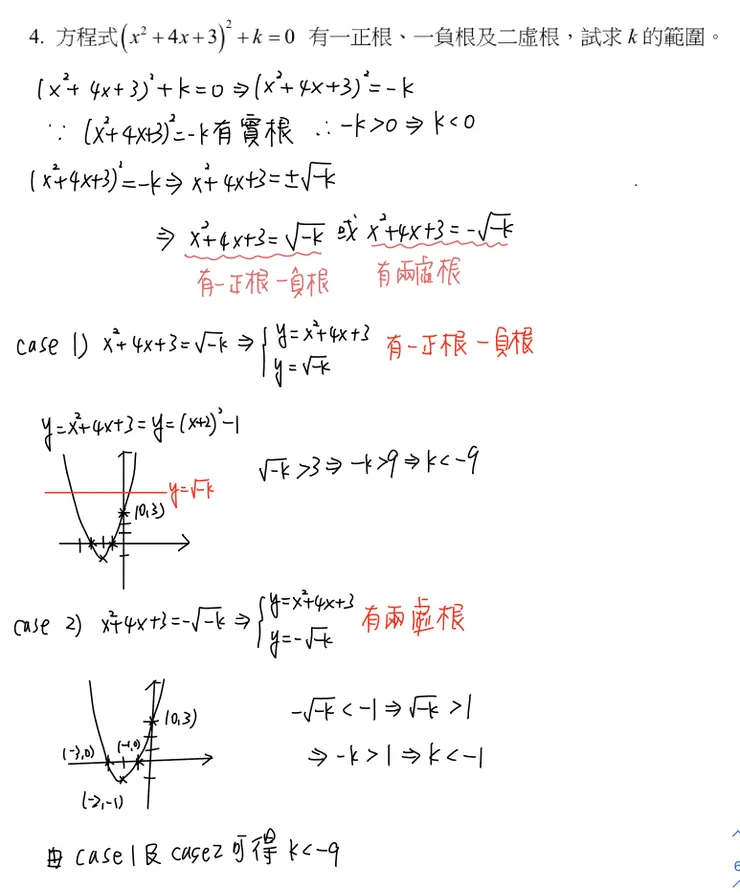 4. 方程式(x²+4x+3)²+k=0 有一正根、一負根及二虛根，試求 k 的範圍。
(x²+4x+3)²+k=0⇒(x²+4x+3)²=-k
∵ (x²+4x+3)²=-k有實根 ∴-k>0⇒k<0
(x²+4x+3)²=-k⇒x²+4x+3=±√-k
⇒ x²+4x+3=√-k 或 x²+4x+3=-√-k
有一正根一負根 有兩虛根
case 1) x²+4x+3=√-k⇒{y=x²+4x+3 有一正根一負根
y=√-k
y=x²+4x+3=y=(x+2)²-1
√-k>3⇒-k>9⇒k<-9
y=√-k
(0,3)
case 2) x²+4x+3=-√-k⇒{y=x²+4x+3 有兩虛根
y=-√-k
(0,3)
-√-k<-1⇒√-k>1
(-3,0) (-1,0)
⇒-k>1⇒k<-1
(-2,-1)
由 case1及case2可得 k<-9
6